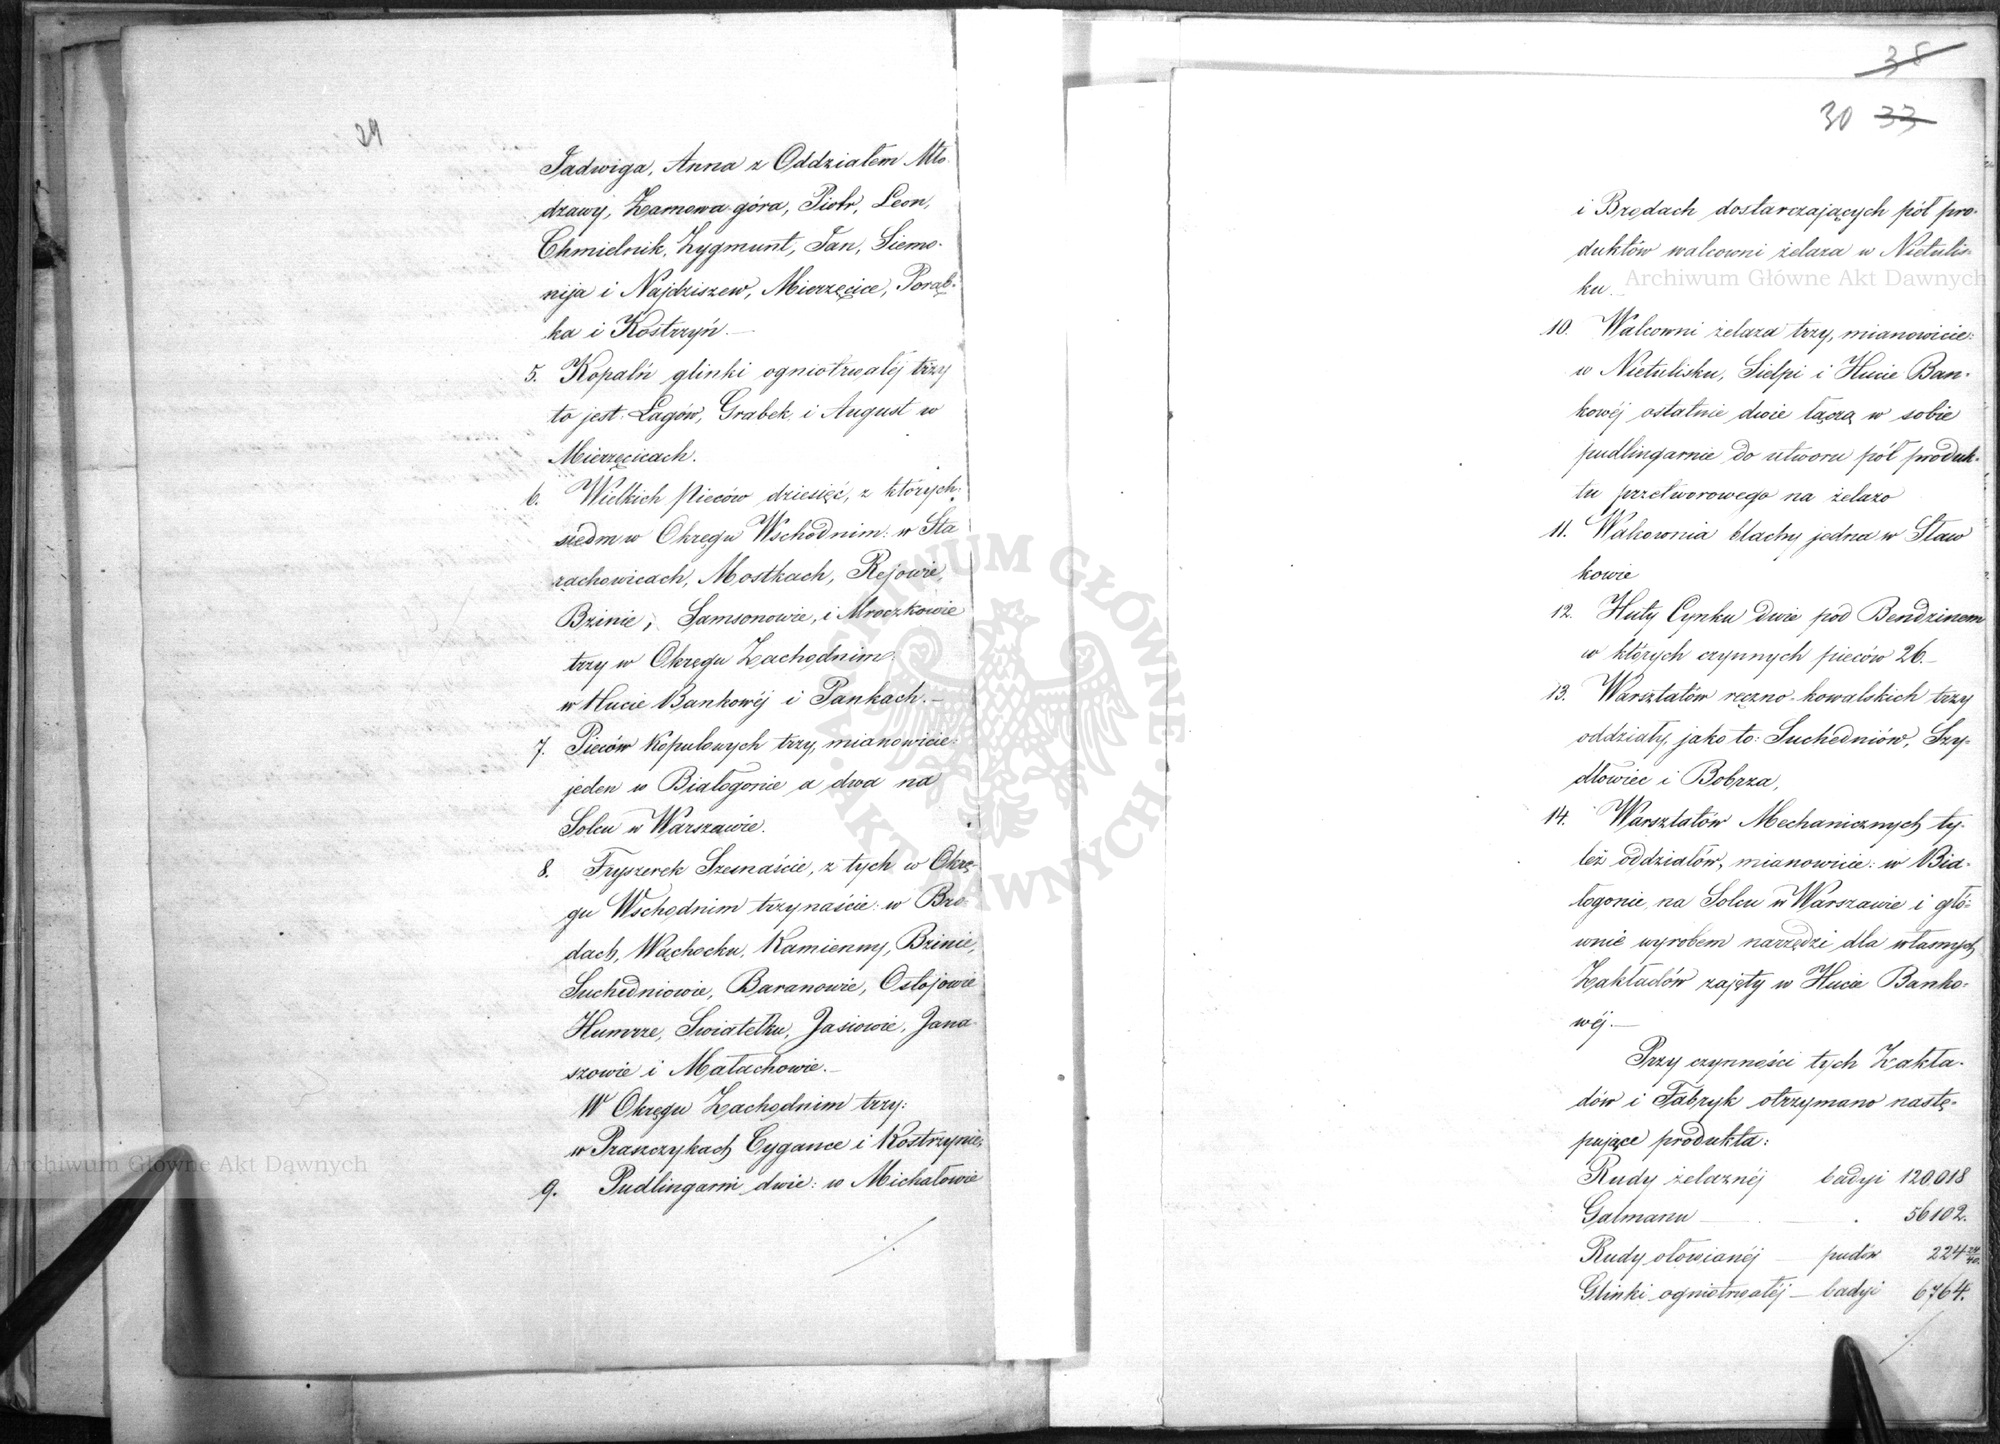 29
Jadwiga, Anna z Oddziałem Mło
dzawy, Zamowa-góra, Piotr, Leon,
Chmielnik, Zygmunt, Jan, Siemo-
nija i Najdziszew, Mierzęcice, Poręb-
ka i Kostrzyń.—
5. Kopalń glinki ogniotrwałéj trzy
to jest: Łagów, Grabek i August w
Mierzęcicach.
6. Wielkich Pieców dziesięć, z których
siedm w Okręgu Wschodnim: w Sta
rachowicach, Mostkach, Rejowie,
Bzinie, Samsonowie, i Mroczkowie
trzy w Okręgu Zachodnim:
w Hucie Bankowéj i Pankach.—
7. Pieców Kopulowych trzy, mianowicie:
jeden w Białogonie a dwa na
Solcu w Warszawie.
8. Fryszerek Szesnaście, z tych w Okrę-
gu Wschodnim trzynaście: w Bro-
dach, Wąchocku, Kamienny, Bzinie,
Suchedniowie, Baranowie, Ostojowie
Humrze, Swiatełku, Jasiowie, Jana-
szowie i Małachowie.—
W Okręgu Zachodnim trzy:
w Praszczykach Cygance i Kostrzynie.
9. Pudlingarni dwie: w Michałowie
./.
35
30 33
i Brodach dostarczających pół pro-
duktów walcowni żelaza w Nietulis-
ku.
10. Walcowni żelaza trzy, mianowicie:
w Nietulisku, Sielpi i Hucie Ban-
kowéj ostatnie dwie łączą w sobie
pudlingarnie do utworu pół produk-
tu przetworowego na żelazo
11. Walcownia blachy jedna w Sław
kowie
12. Huty Cynku dwie pod Bendzinem
w których czynnych pieców 26.—
13. Warsztatów ręczno-kowalskich trzy
oddziały, jako to: Suchedniów, Szy-
dłowiec i Bobrza,
14. Warsztatów Mechanicznych ty-
leż oddziałów, mianowicie: w Bia-
łogonie, na Solcu w Warszawie i głó-
wnie wyrobem narzędzi dla własnych
Zakładów zajęty w Hucie Banko-
wéj.—
Przy czynności tych Zakła-
dów i Fabryk otrzymano nastę-
pujące produkta:
Rudy żelaznéj badyi 120,018
Galmanu — . 56102.
Rudy ołowianéj — pudów 224 24/40.
Glinki ogniotrwałéj — badyi 6764.
./.
Archiwum Główne Akt Dawnych
Archiwum Główne Akt Dawnych
ARCHIWUM GŁÓWNE · AKT DAWNYCH ·